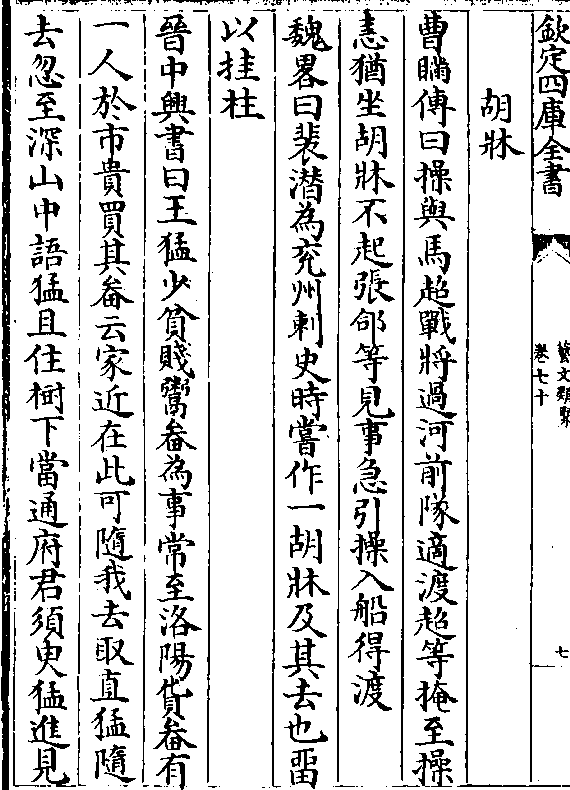 欽定四庫全書
藝文類聚
卷七十
七
胡牀
曹瞞傳曰操與馬超戰將過河前隊適渡超等掩至操
恚猶坐胡牀不起張郃等見事急引操入船得渡
魏畧曰裴潛為兖州刺史時嘗作一胡牀及其去也畱
以挂柱
晉中興書曰王猛少貧賤鬻畚為事常至洛陽貨畚有
一人於市貴買其畚云家近在此可隨我去取直猛隨
去忽至深山中語猛且住樹下當通府君須臾猛進見